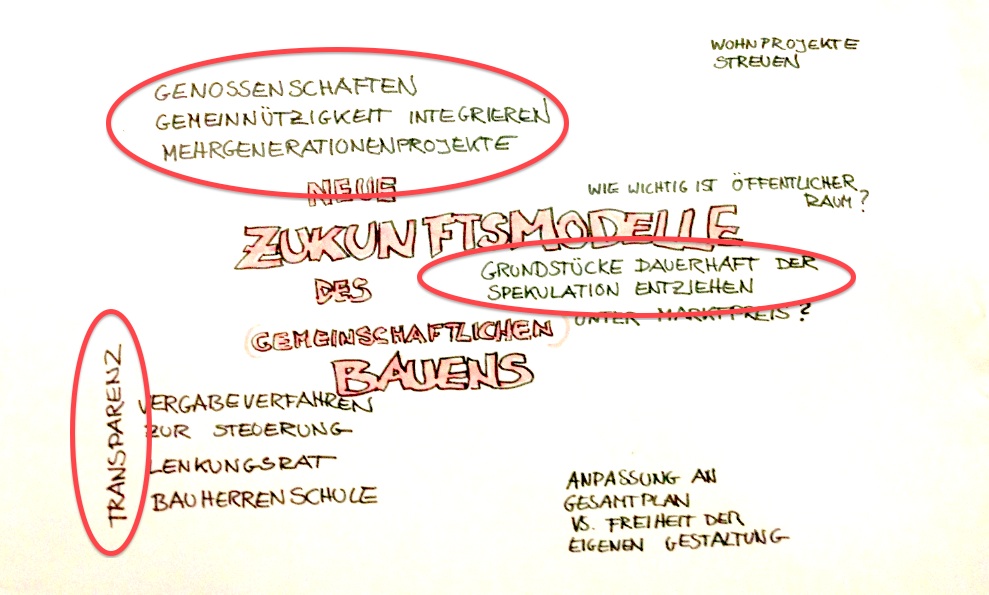 WOHNPROJEKTE
STREUEN
GENOSSENSCHAFTEN
GEMEINNÜTZIGKEIT INTEGRIEREN
MEHRGENERATIONENPROJEKTE
NEUE
ZUKUNFTSMODELLE
DES
(GEMEINSCHAFTLICHEN)
BAUENS
WIE WICHTIG IST ÖFFENTLICHER
RAUM?
GRUNDSTÜCKE DAUERHAFT DER
SPEKULATION ENTZIEHEN
UNTER MARKTPREIS?
TRANSPARENZ
VERGABEVERFAHREN
ZUR STEUERUNG
LENKUNGSRAT
BAUHERRENSCHULE
ANPASSUNG AN
GESAMTPLAN
VS. FREIHEIT DER
EIGENEN GESTALTUNG